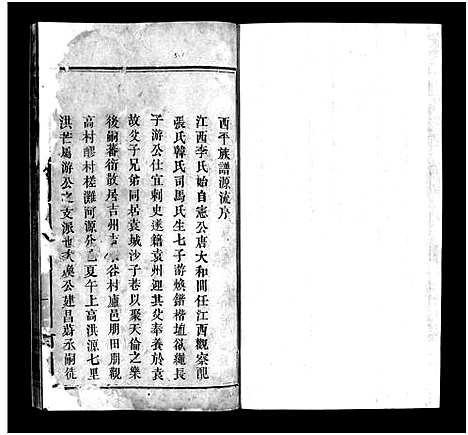 西平族譜源流序
江西李氏始自憲公唐大和間任江西觀察龍
張氏韓氏司馬氏生七子游煥鍇楷埴欲繩長
子游公仕宜刺史遂籍袁州迎其父奉養於袁
故父子兄弟同居袁城沙子巷以聚天倫之樂
後嗣蕃衍散居吉州谷村廬邑朋田朋觀
高村醪村槎灘河源分夏午上高洪源七里
洪芒屬游公之支派也公建昌蔚丞嗣徙